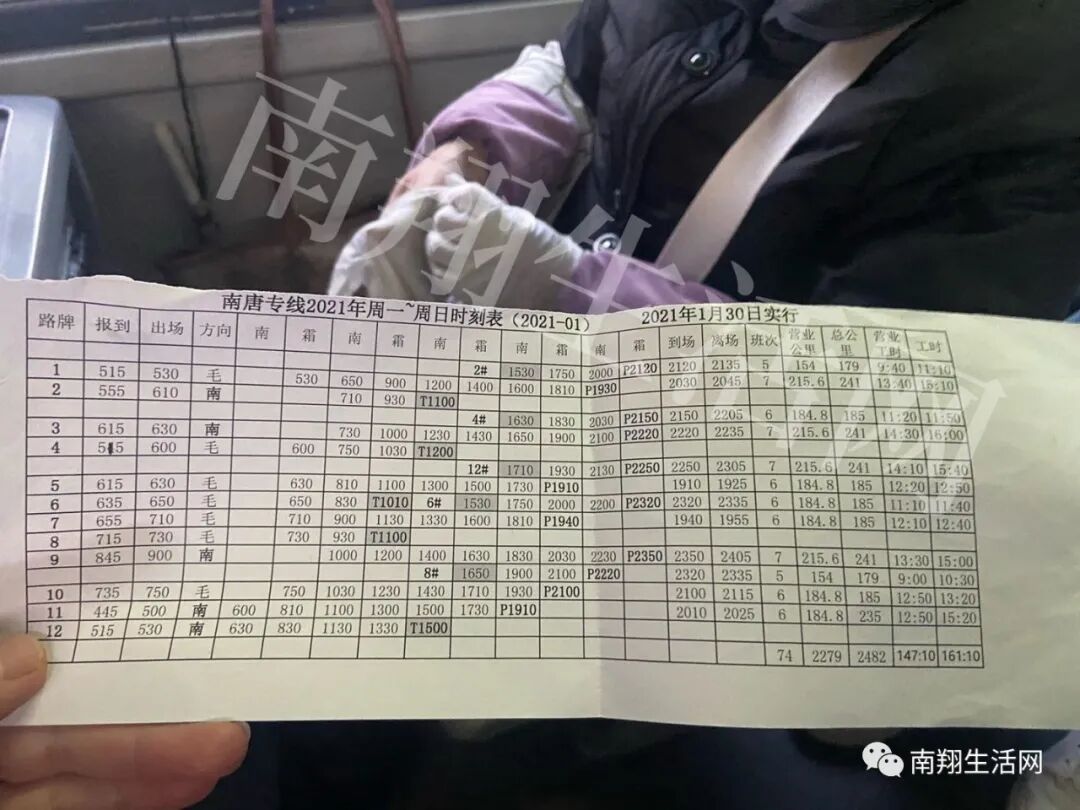 南翔生活网
南唐专线2021年周一~周日时刻表（2021-01） 2021年1月30日实行
路牌 报到 出场 方向 南 霜 南 霜 南 霜 南 霜 南 霜 到场 离场 班次 营业公里 总公里 营业工时 工时
2# 1530 1750 2000 P2120 2120 2135 5 154 179 9:40 11:10
1 515 530 毛 530 650 900 1200 1400 1600 1810 P1930 2030 2045 7 215.6 241 13:40 15:10
2 555 610 南 710 930 T1100
4# 1630 1830 2030 P2150 2150 2205 6 184.8 185 11:20 11:50
3 615 630 南 730 1000 1230 1430 1650 1900 2100 P2220 2220 2235 7 215.6 241 14:30 16:00
4 600 毛 600 750 1030 T1200
12# 1710 1930 2130 P2250 2250 2305 7 215.6 241 14:10 15:40
5 615 630 毛 630 810 1100 1300 1500 1730 P1910 1910 1925 6 184.8 185 12:20 12:50
6 635 650 毛 650 830 T1010 6# 1530 1750 2000 2200 P2320 2320 2335 6 184.8 185 11:10 11:40
7 655 710 毛 710 900 1130 1330 1600 1810 P1940 1940 1955 6 184.8 185 12:10 12:40
8 715 730 毛 730 930 T1100
9 845 900 南 1000 1200 1400 1630 1830 2030 2230 P2350 2350 2405 7 215.6 241 13:30 15:00
8# 1650 1900 2100 P2220 2320 2335 5 154 179 9:00 10:30
10 735 750 毛 750 1030 1230 1430 1710 1930 P2100 2100 2115 6 184.8 185 12:50 13:20
11 445 500 南 600 810 1100 1300 1500 1730 P1910 2010 2025 6 184.8 235 12:50 15:20
12 515 530 南 630 830 1130 1330 T1500
74 2279 2482 147:10 161:10
南翔生活网